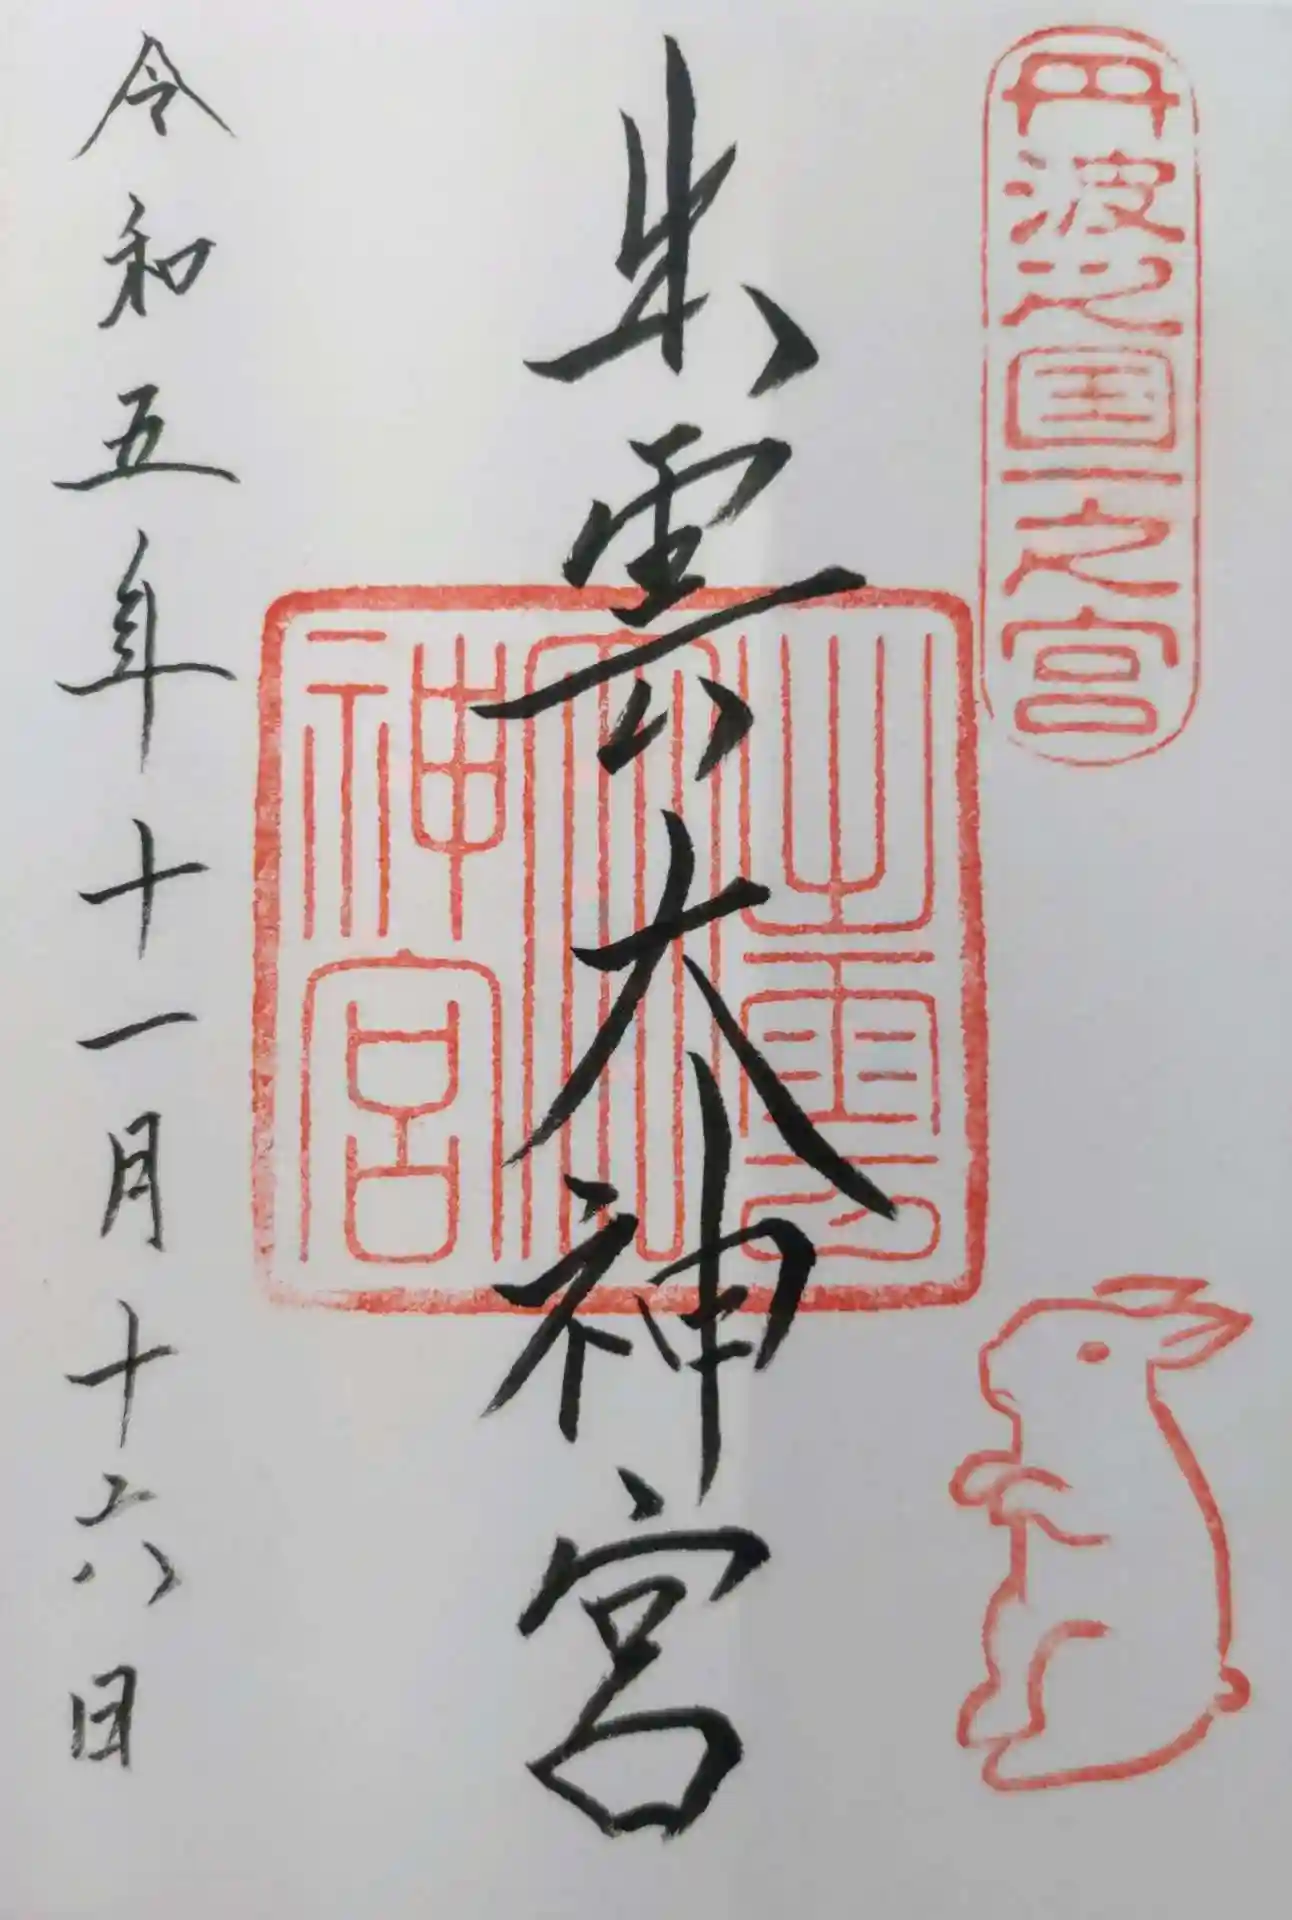 丹波之国一之宮
出雲大神宮
出雲大神宮
令和五年十一月十六日